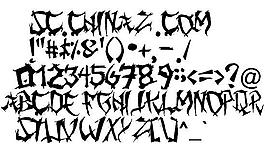 SC.CHINAZ.COM
!"#$%&'()*+,-./
0123456789:;<=>?@
ABCDEFGHIJKLMNOPQR
STUVWXYZ[\]^_